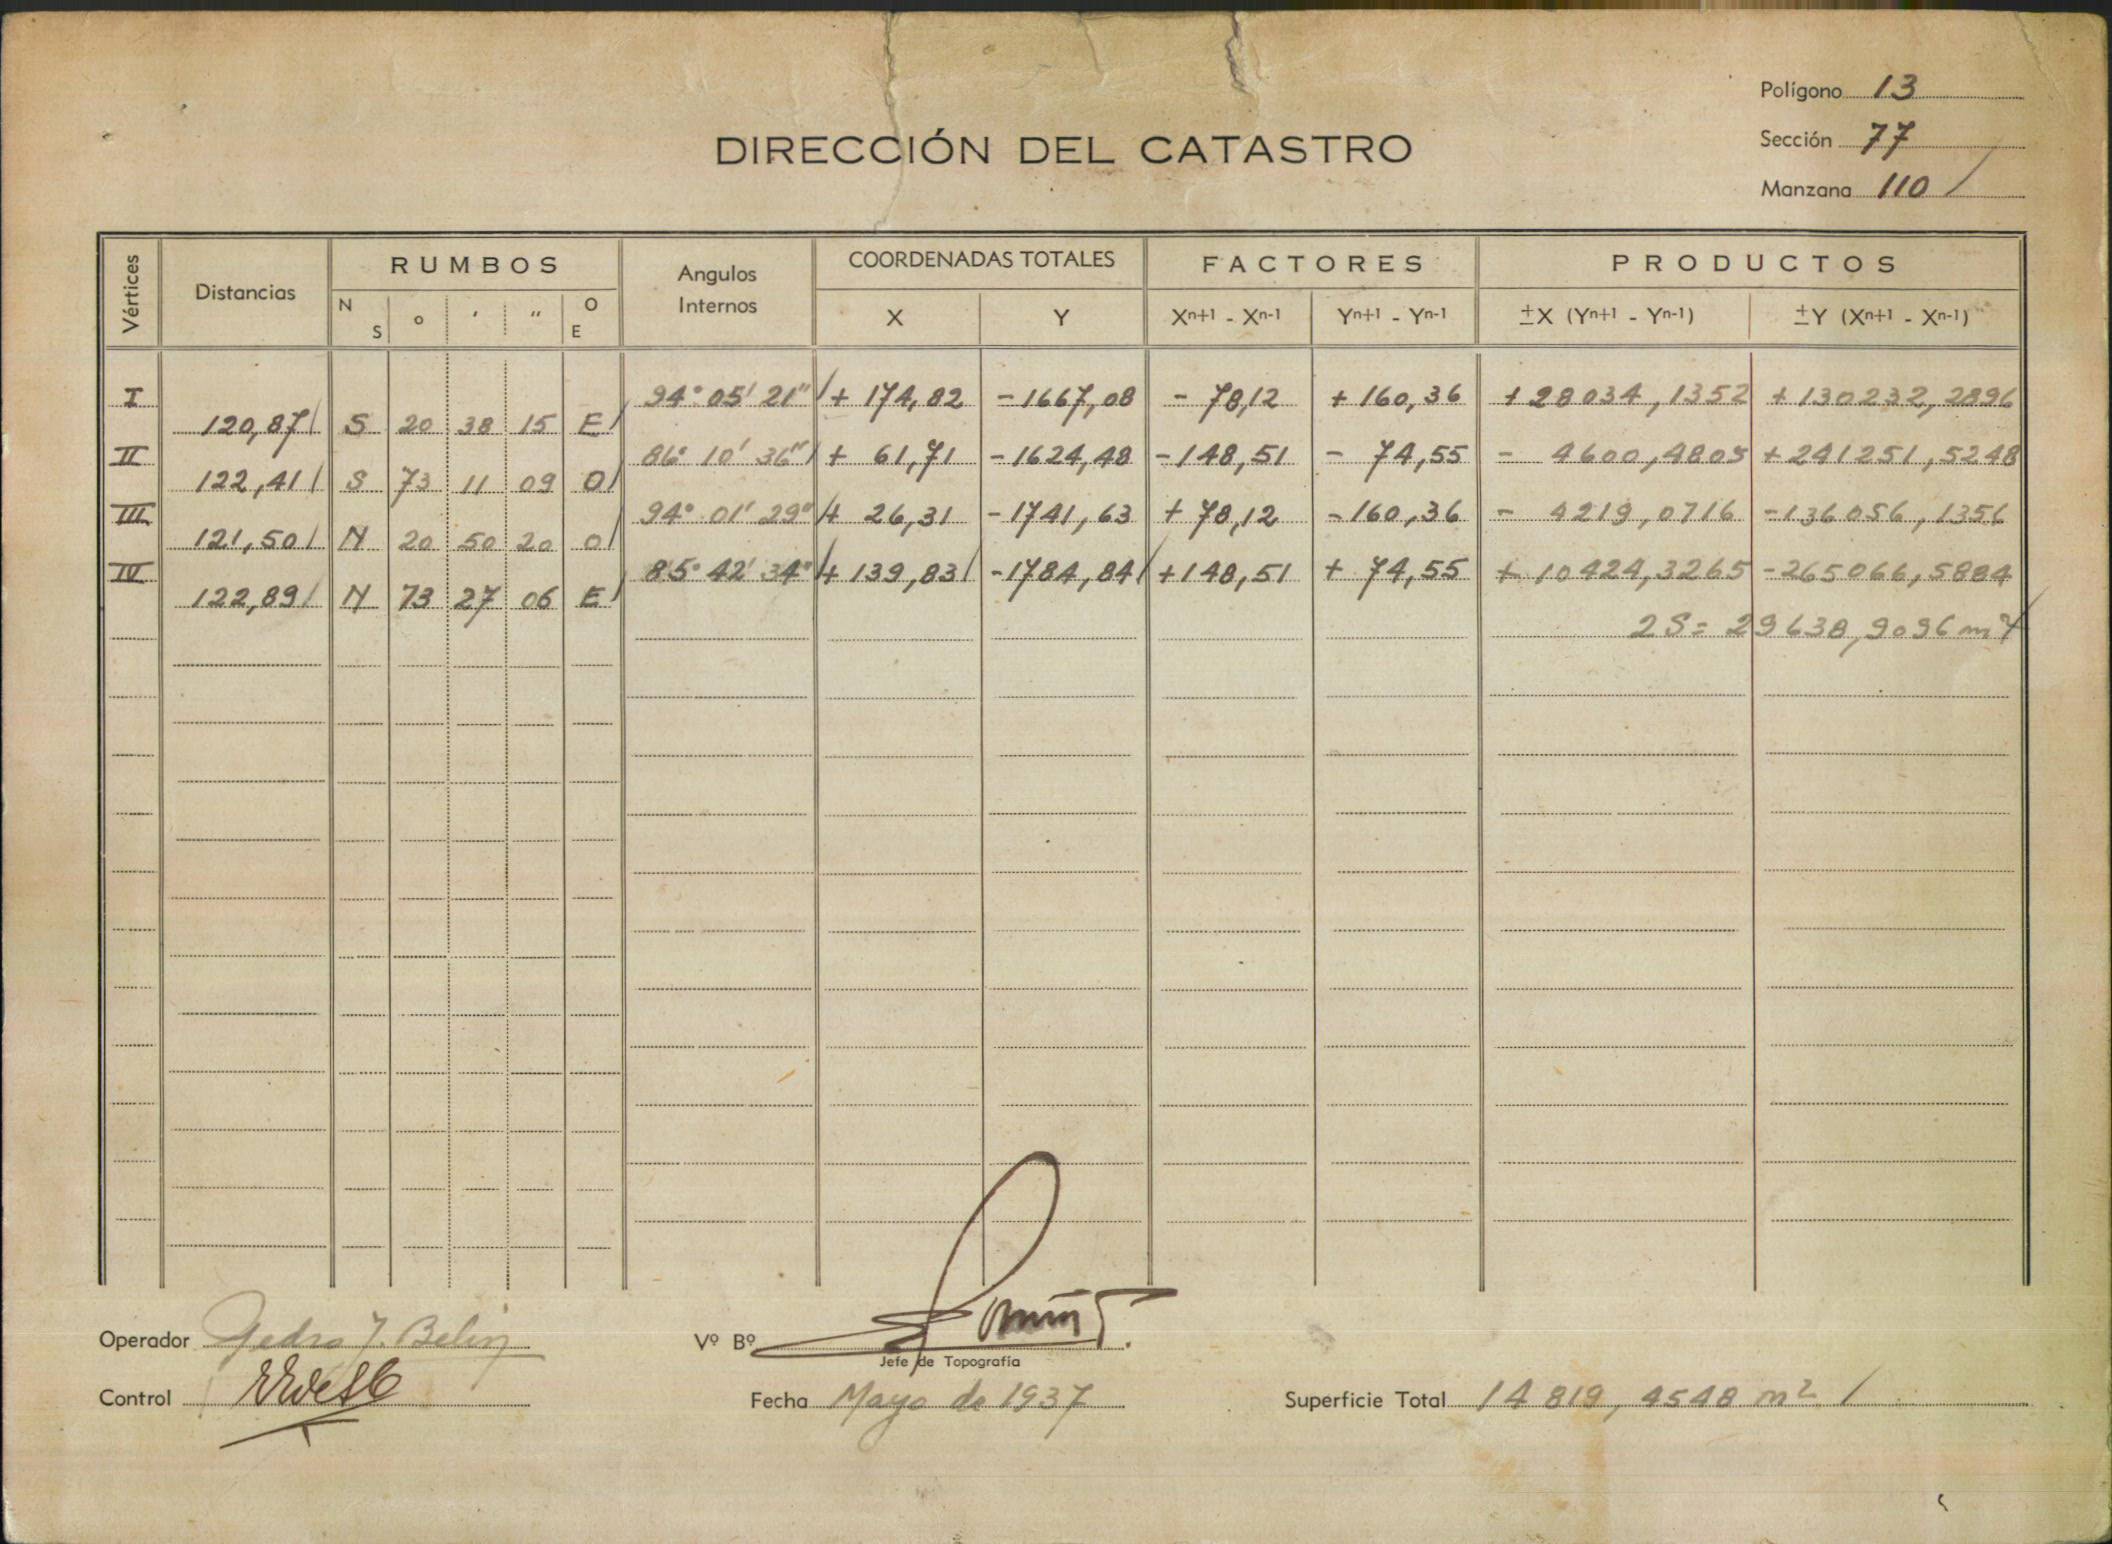 Polígono 13
Sección 77
Manzana 110 /
DIRECCIÓN DEL CATASTRO
Vértices Distancias RUMBOS Angulos Internos COORDENADAS TOTALES FACTORES PRODUCTOS
N S o ' " O E X Y Xn+1 - Xn-1 Yn+1 - Yn-1 ±X (Yn+1 - Yn-1) ±Y (Xn+1 - Xn-1)
I 94° 05' 21" / + 174,82 -1667,08 - 78,12 + 160,36 + 28034,1352 + 130232,2896
120,87 / S 20 38 15 E /
II 86° 10' 36" / + 61,71 -1624,48 -148,51 - 74,55 - 4600,4805 +241251,5248
122,41 / S 73 11 09 O /
III 94° 01' 29" / + 26,31 -1741,63 + 78,12 -160,36 - 4219,0716 -136056,1356
121,50 / N 20 50 20 O /
IV 85° 42' 34" / + 139,83 / -1784,84 / +148,51 + 74,55 + 10424,3265 -265066,5884
122,89 / N 73 27 06 E /
2S = 29638,9096 m² /
Operador Pedro J. Belin
Vº Bº
Jefe de Topografía
Control
Fecha Mayo de 1937
Superficie Total 14 819, 4548 m² /